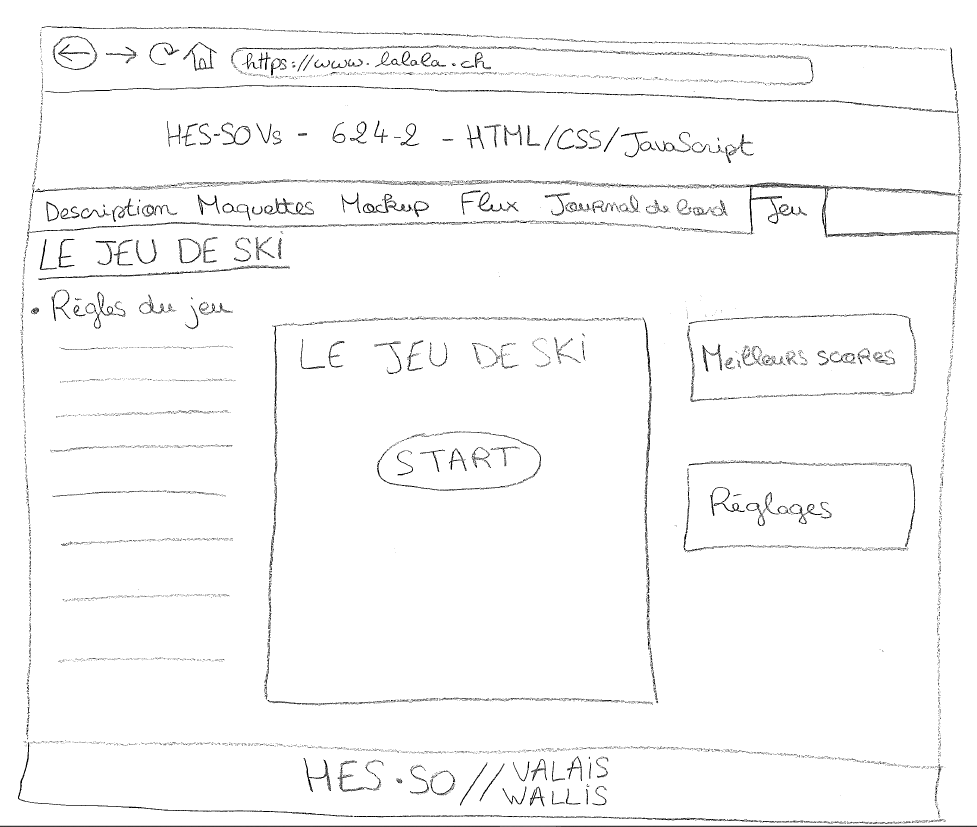 https://www.lalala.ch
HES-SO Vs - 624-2 - HTML/CSS/JavaScript
Description Maquettes Mockup Flux Journal de bord Jeu
LE JEU DE SKi
• Règles du jeu
LE JEU DE SKi
START
Meilleurs scores
Réglages
HES·SO // VALAiS
WALLiS